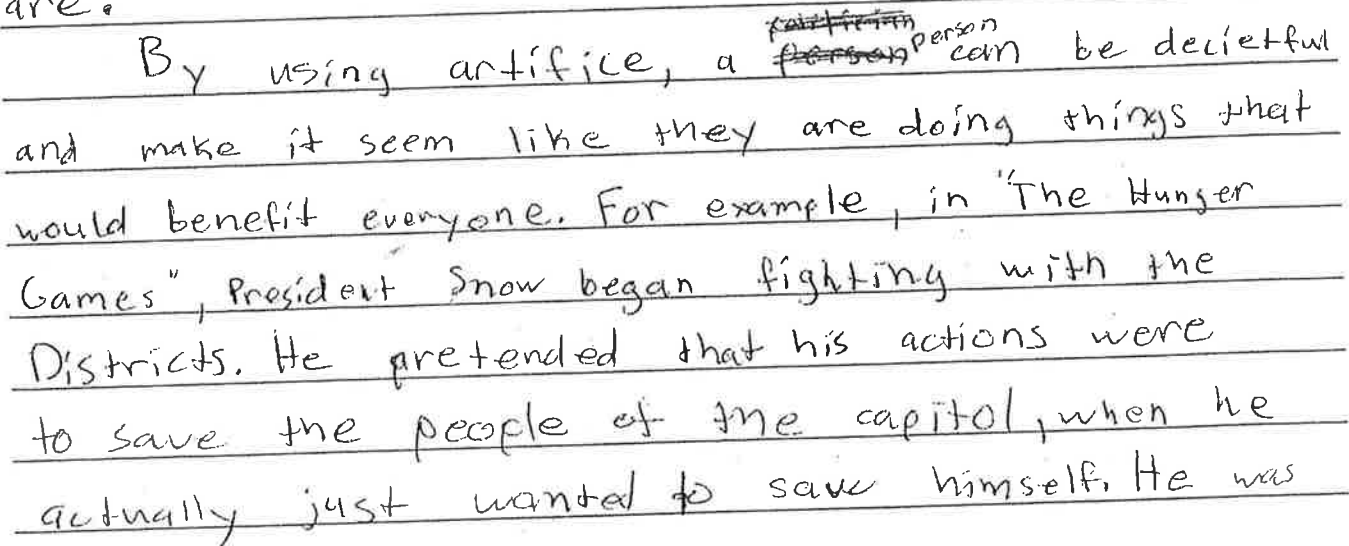 are.
By using artifice, a person can be decietful
and make it seem like they are doing things that
would benefit everyone. For example, in "The Hunger
Games", President Snow began fighting with the
Districts. He pretended that his actions were
to save the people of the capitol, when he
actually just wanted to save himself. He was